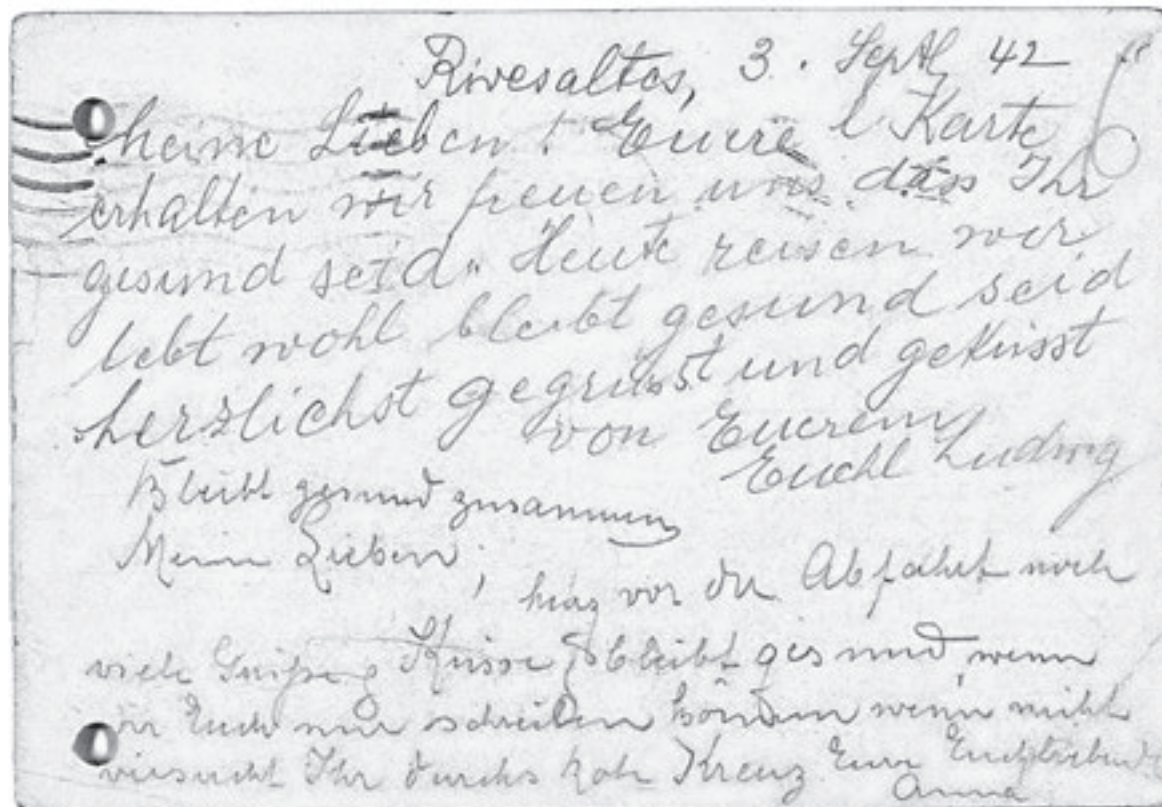 Rivesaltes, 3. Sept. 42
Meine Lieben! Euere l Karte
erhalten wir freuen uns dass Ihr
gesund seid. Heute reisen wir
lebt wohl bleibt gesund seid
herzlichst gegrüsst und geküsst
von Euerem
Euchl Ludwig
Bleibt gesund zusammen
Meine Lieben!
kurz vor der Abfahrt noch
viele Grüße & Küsse, bleibt gesund, wenn
wir Euch nur schreiben können wenn nicht
versucht Ihr durchs rote Kreuz Eure Euchliebende
Anna